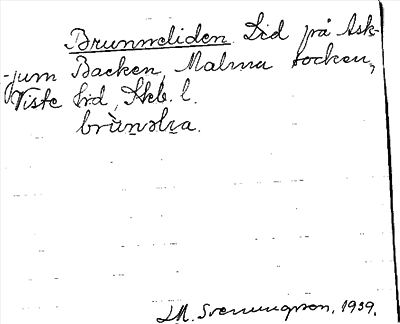 Brunneliden. Lid på Ask-
jum Backen, Malma socken,
Viste hd, Skb. l.
brùnəlɩa.
J.M. Svenungsson, 1939.